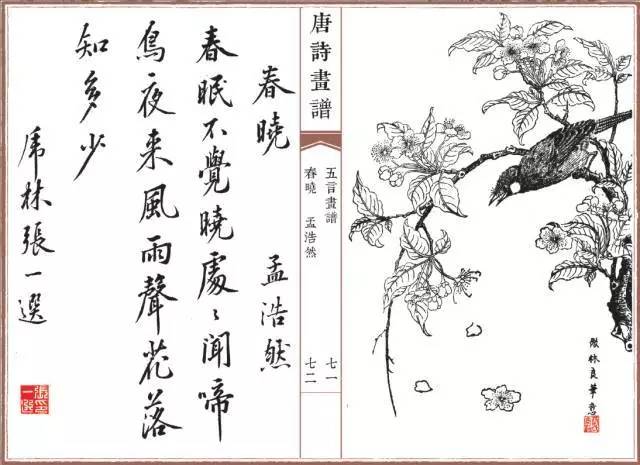 春曉 孟浩然
春眠不覺曉處〻聞啼
鳥夜来風雨聲花落
知多少
虎林張一選
唐詩畫譜
五言畫譜
春曉 孟浩然
七一
七二
倣林良筆意